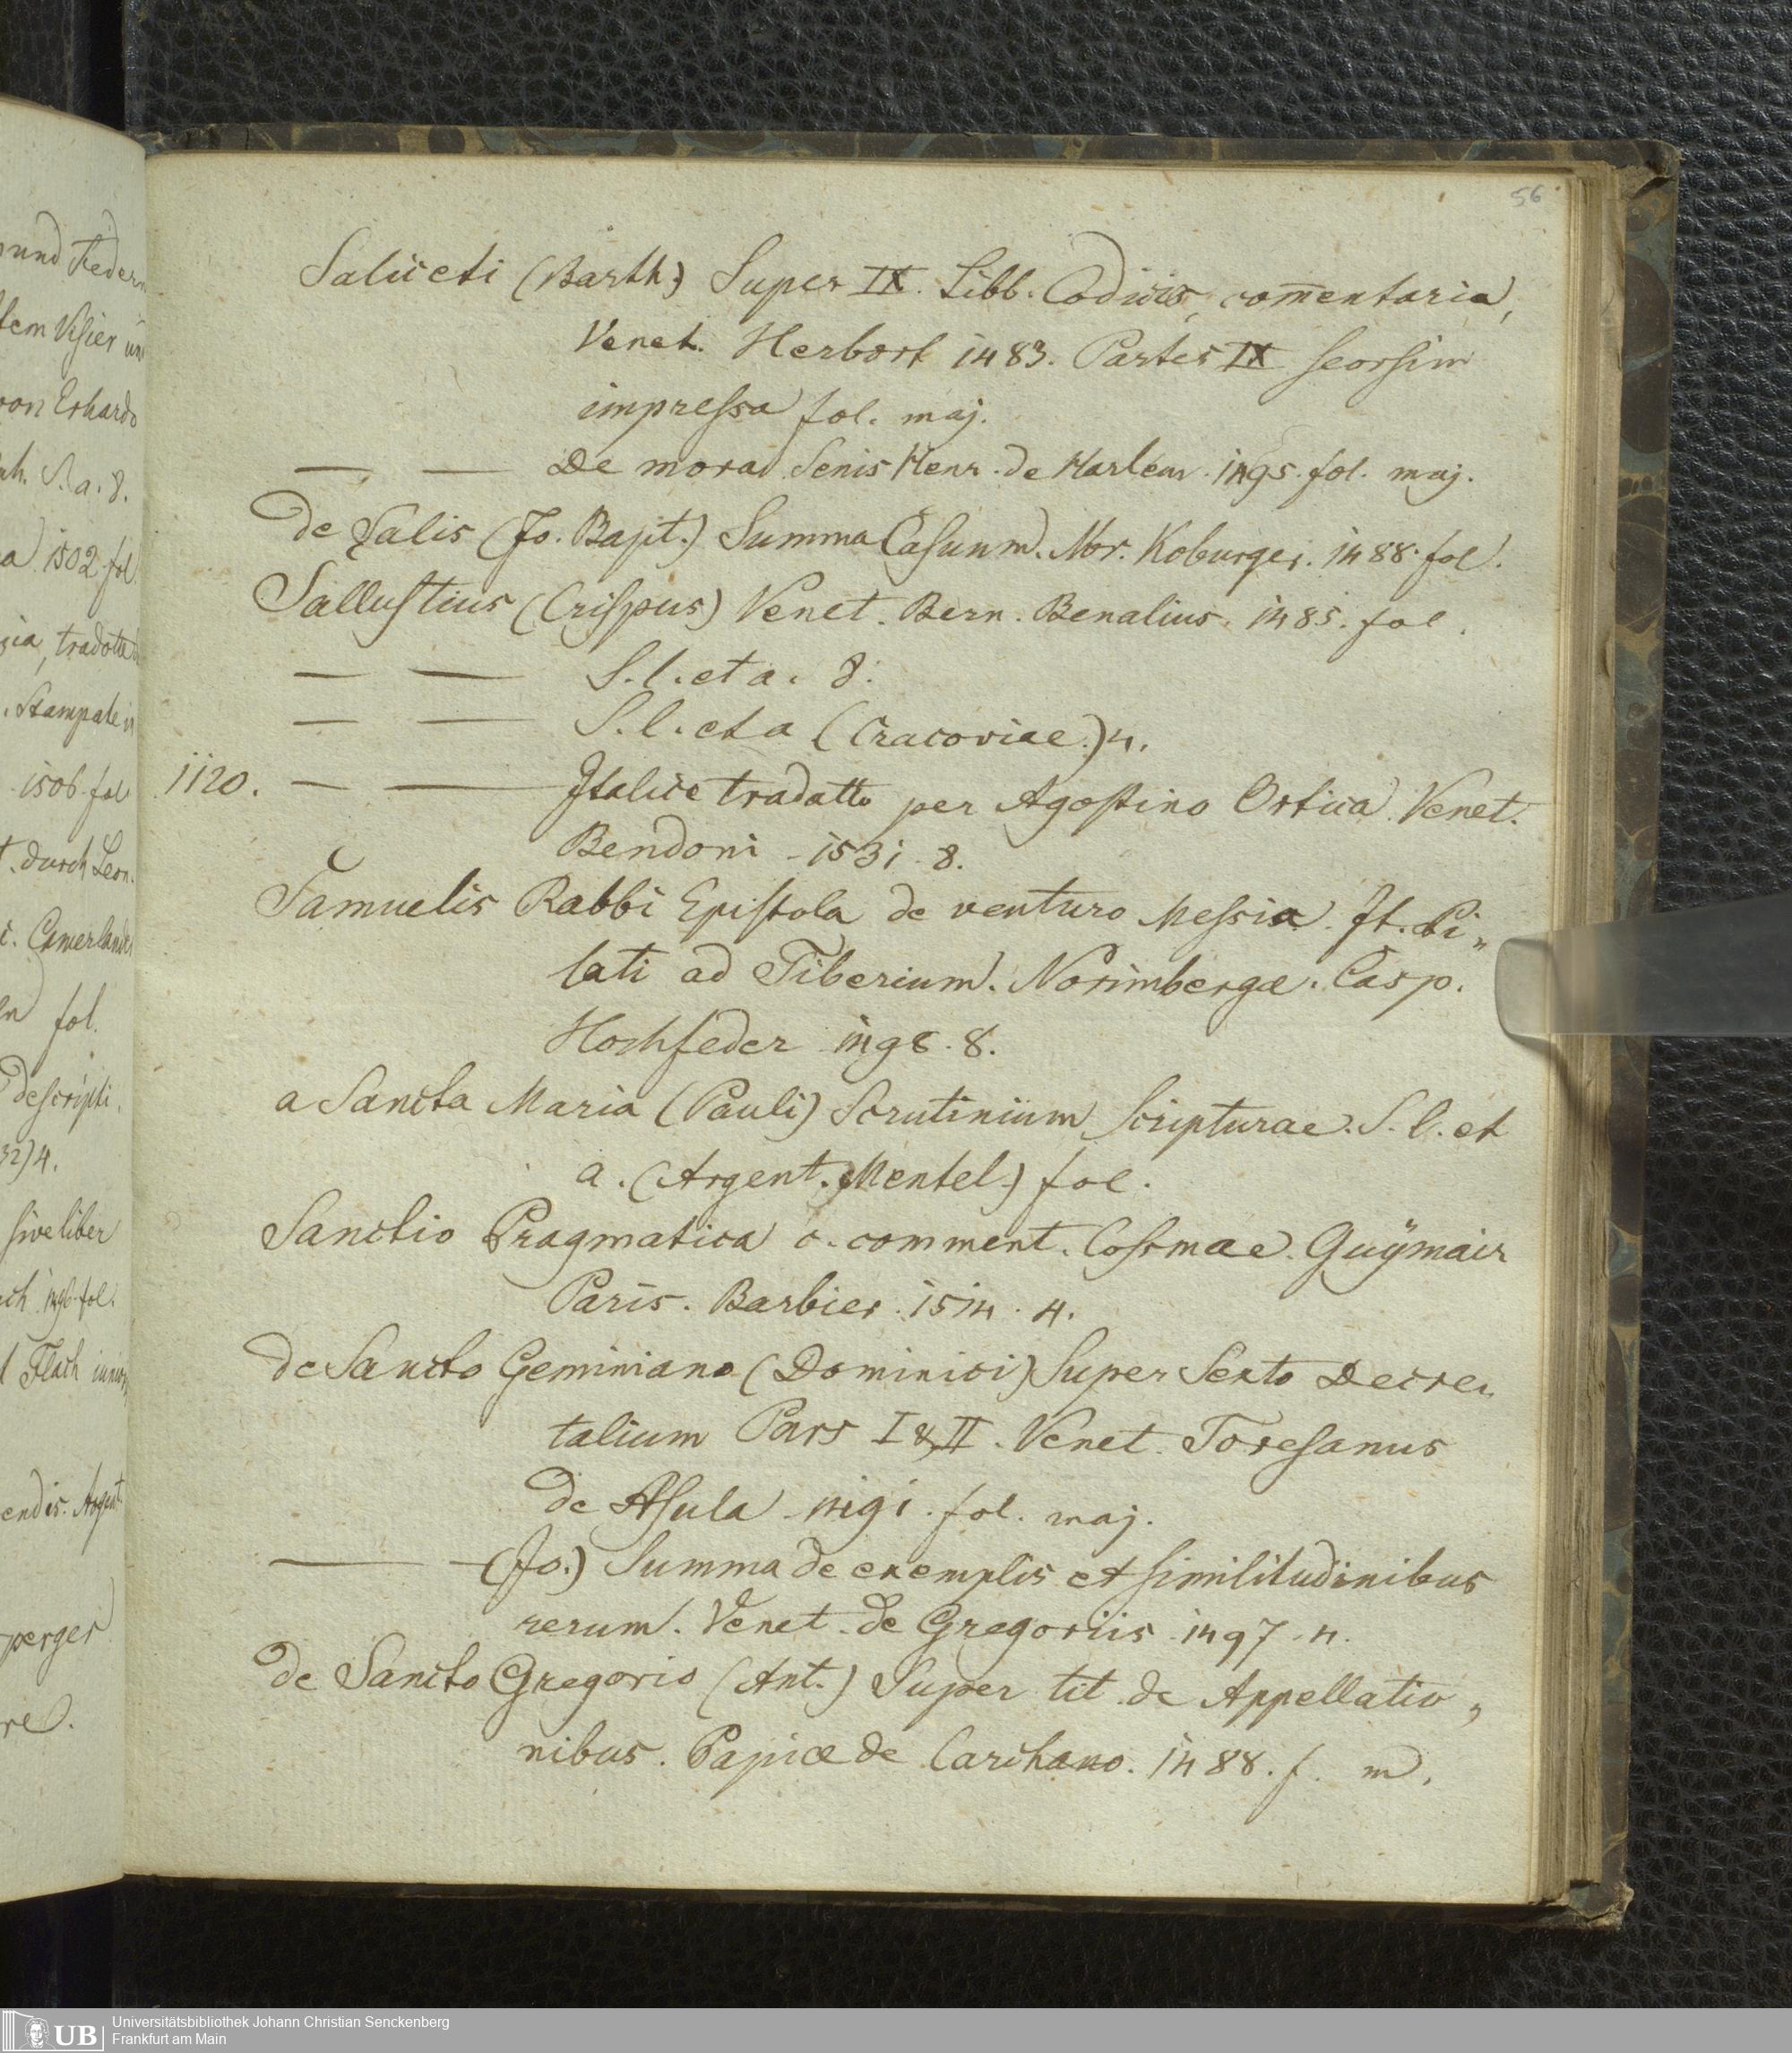 56
Saliceti (Barth.) Super IX. Libb. Codicis, com̅entaria,
Venet. Herbort 1483. Partes IX seorsim
impressa fol. maj.
— — De mora Senis Henr. de Harlem. 1495. fol. maj.
de Salis (Jo. Bapt.) Summa Casuum. Nor. Koburger. 1488. fol.
Sallustius (Crispus) Venet. Bern. Benalius. 1485. fol.
— — S. l. et a. 8.
— — S. l. et a (Cracoviae.) 4.
1120. — — Italice tradatto per Agostino Ortica. Venet.
Bendoni 1531. 8.
Samuelis Rabbi Epistola de venturo Messia. It. Pi„
lati ad Tiberium. Norimbergæ. Casp.
Hochfeder 1498. 8.
a Sancta Maria (Pauli) Scrutinium Scripturae. S. l. et
a. (Argent. Mentel.) fol.
Sanctio Pragmatica c. comment. Cosmae. Guÿmair
Paris. Barbier. 1514. 4.
de Sancto Geminiano (Dominici) Super Sexto Decre„
talium Pars I & II. Venet. Toresanus
de Asula 1491. fol. maj.
— — (Jo.) Summa de exemplis et similitudinibus
rerum. Venet. de Gregoriis 1497. 4.
de Sancto Gregorio (Ant.) Super tit. de Appellatio„
nibus. Papiæ de Carchano. 1488. f. m.
und Federn
von Erhardo
S. a. 8.
1502 fol
tradotta
Stampate in
1506 fol
durch Leon.
fol.
descripti
32) 4.
sive liber
1496. fol.
Flach
endis. Argent.
perger
UB
Universitätsbibliothek Johann Christian Senckenberg
Frankfurt am Main